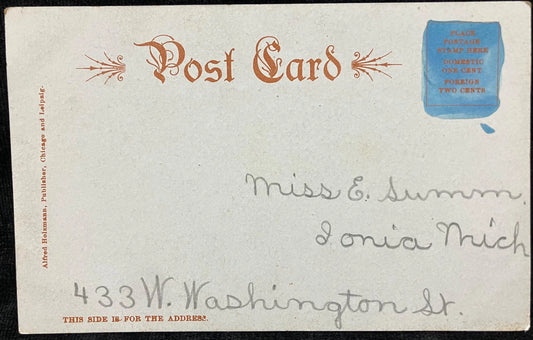 Post Card
PLACE
POSTAGE
STAMP HERE
DOMESTIC
ONE CENT
FOREIGN
TWO CENTS
Alfred Holzmann, Publisher, Chicago and Leipsig.
Miss E. Summ.
Ionia Mich
433 W. Washington St.
THIS SIDE IS FOR THE ADDRESS.